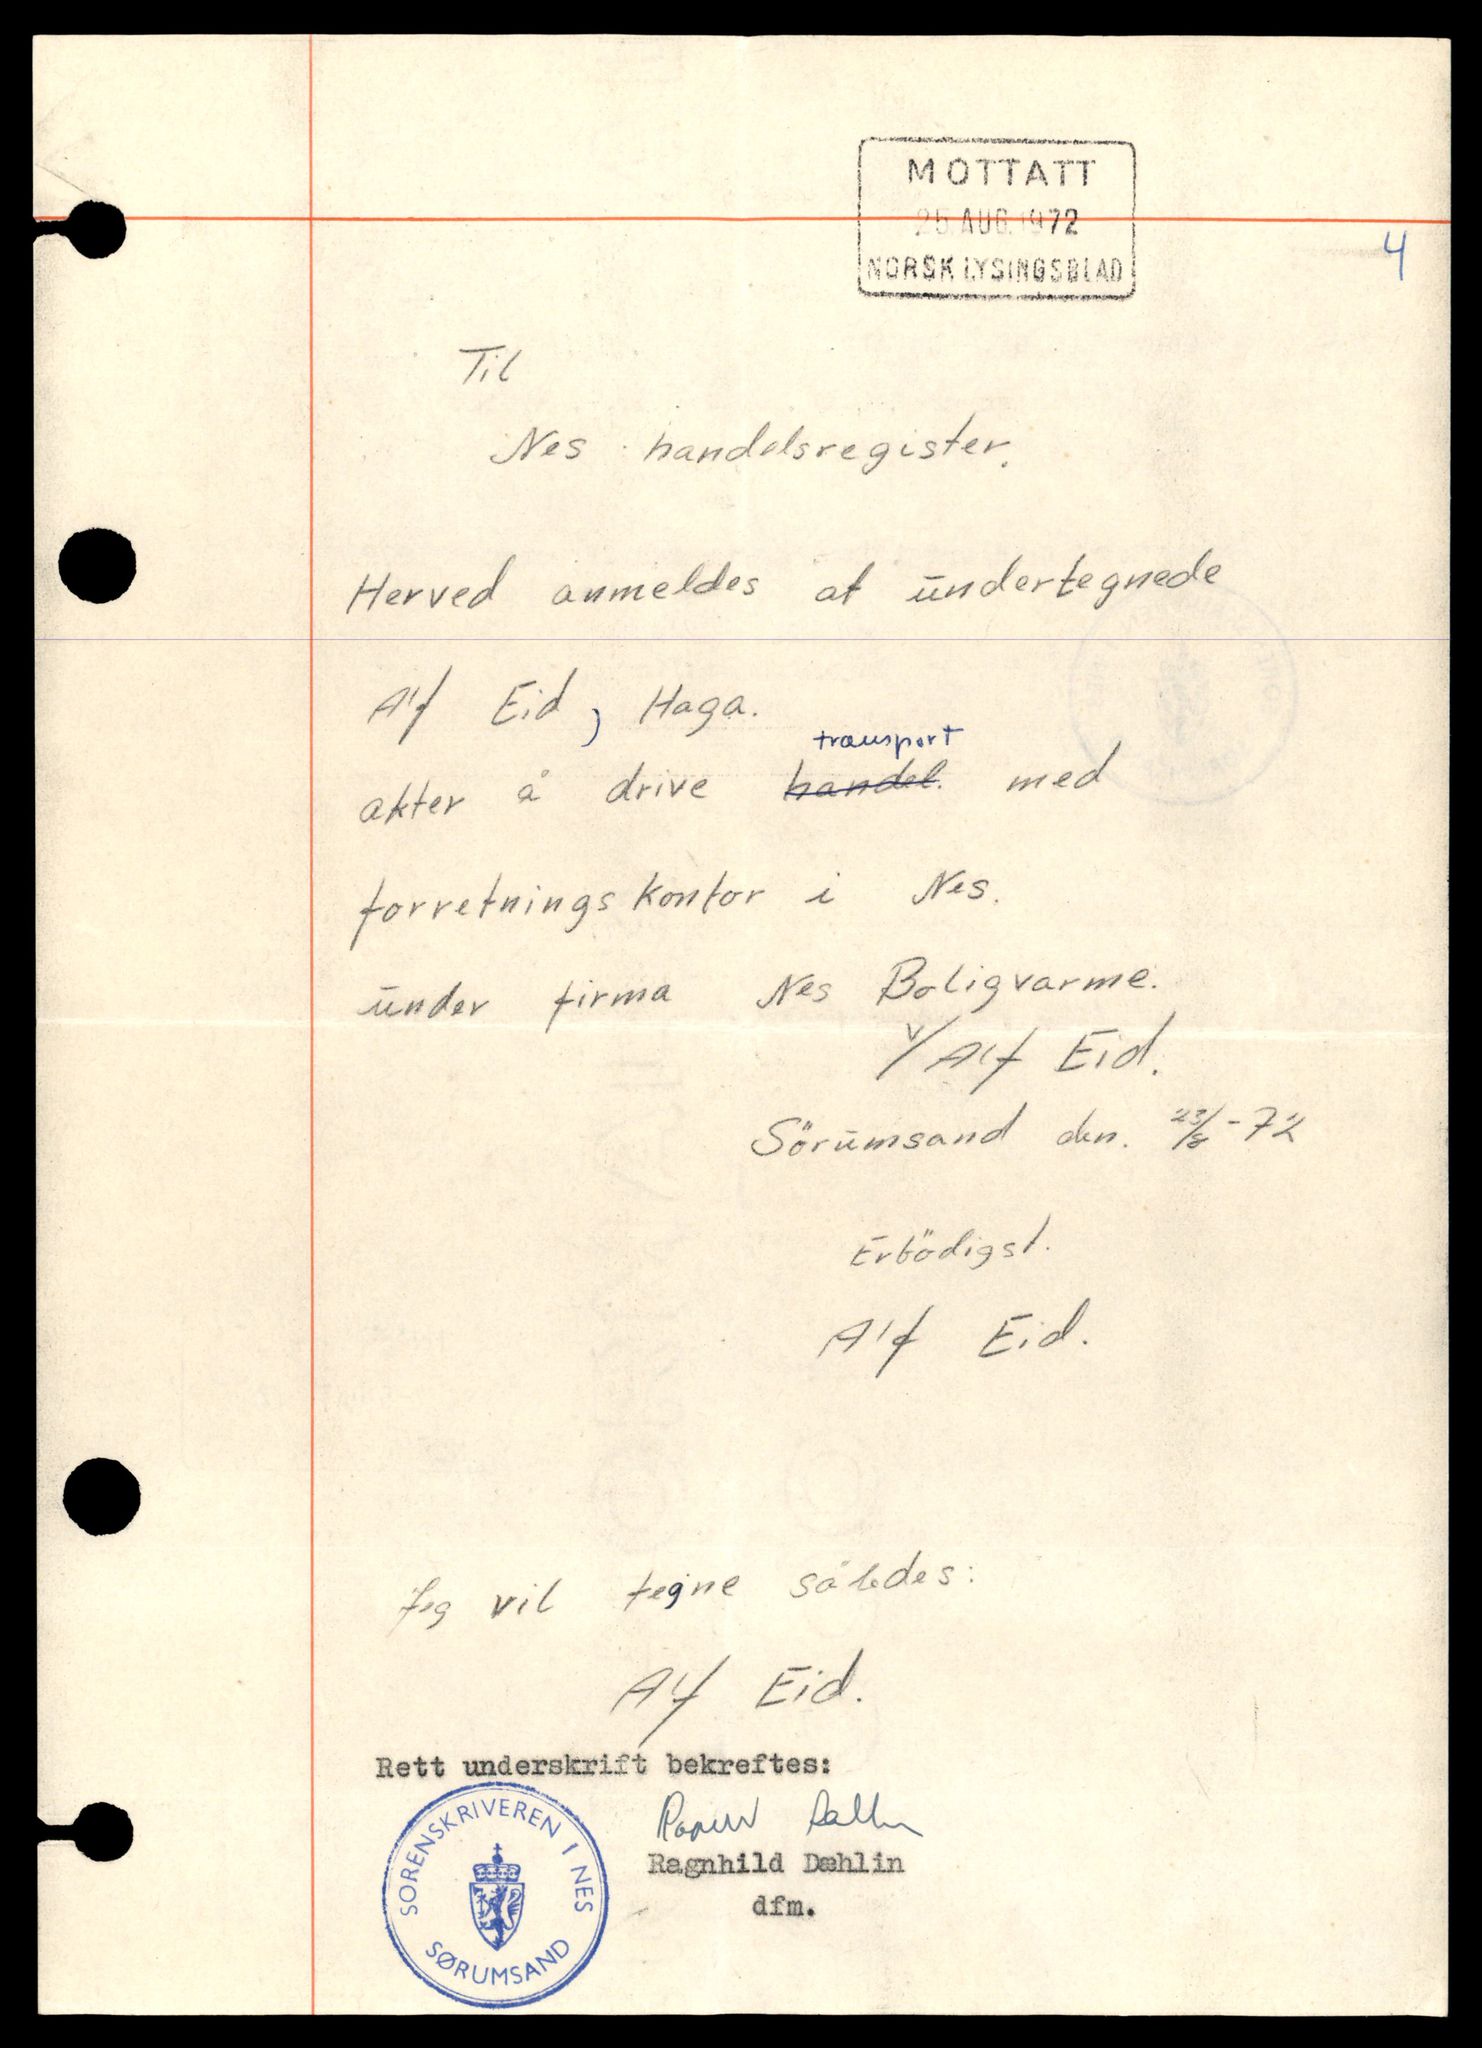 MOTTATT
25 AUG. 1972
NORSK LYSINGSBLAD
4
Til
Nes handelsregister.
Herved anmeldes at undertegnede
Alf Eid, Haga.
transport
akter å drive handel. med
forretningskontor i Nes.
under firma Nes Boligvarme.
v/ Alf Eid.
Sörumsand den. 23/8-72
Erbödigst.
Alf Eid.
Jeg vil tegne således:
Alf Eid.
Rett underskrift bekreftes:
Ragnhild Dæhlin
dfm.
SORENSKRIVEREN I NES
SØRUMSAND